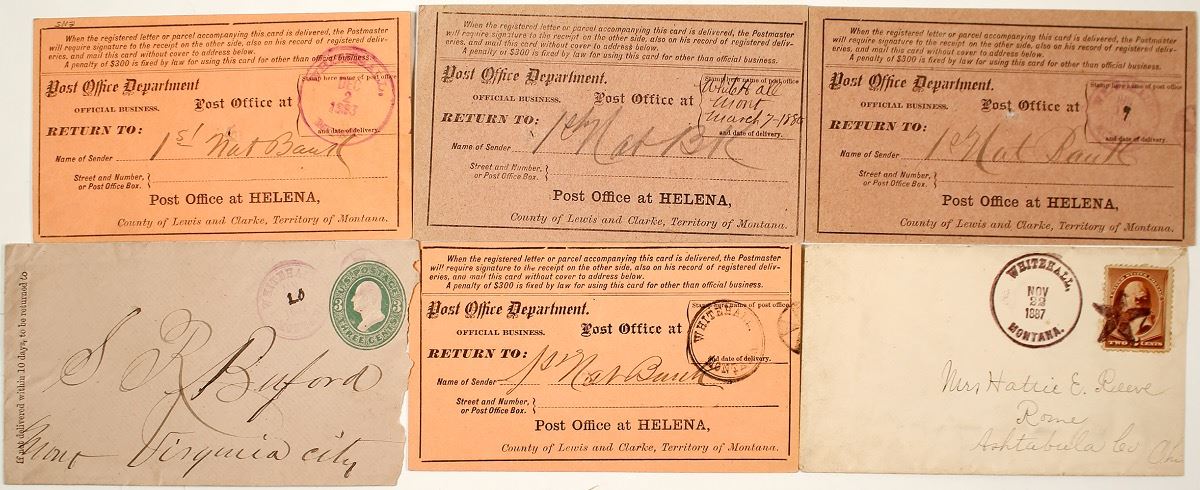 When the registered letter or parcel accompanying this card is delivered, the Postmaster
will require signature to the receipt on the other side, also on his record of registered deliv-
eries, and mail this card without cover to address below.
A penalty of $300 is fixed by law for using this card for other than official business.
Post Office Department.
OFFICIAL BUSINESS.
Post Office at
Stamp here name of post office
DEC
1883
and date of delivery.
RETURN TO:
Name of Sender 1st Nat Bank
Street and Number,
or Post Office Box.
Post Office at HELENA,
County of Lewis and Clarke, Territory of Montana.
When the registered letter or parcel accompanying this card is delivered, the Postmaster
will require signature to the receipt on the other side, also on his record of registered deliv-
eries, and mail this card without cover to address below.
A penalty of $300 is fixed by law for using this card for other than official business.
Post Office Department.
OFFICIAL BUSINESS.
Post Office at
Stamp here name of post office
Whitehall
Mont
March 7-188
and date of delivery.
RETURN TO:
Name of Sender 1st Nat Bk
Street and Number,
or Post Office Box.
Post Office at HELENA,
County of Lewis and Clarke, Territory of Montana.
When the registered letter or parcel accompanying this card is delivered, the Postmaster
will require signature to the receipt on the other side, also on his record of registered deliv-
eries, and mail this card without cover to address below.
A penalty of $300 is fixed by law for using this card for other than official business.
Post Office Department.
OFFICIAL BUSINESS.
Post Office at
Stamp here name of post office
and date of delivery.
RETURN TO:
Name of Sender 1st Nat Bank
Street and Number,
or Post Office Box.
Post Office at HELENA,
County of Lewis and Clarke, Territory of Montana.
If not delivered within 10 days, to be returned to
WHITEHALL
U.S. POSTAGE
3 3
THREE CENTS
S. R. Buford
Virginia city
Mont
When the registered letter or parcel accompanying this card is delivered, the Postmaster
will require signature to the receipt on the other side, also on his record of registered deliv-
eries, and mail this card without cover to address below.
A penalty of $300 is fixed by law for using this card for other than official business.
Post Office Department.
OFFICIAL BUSINESS.
Post Office at
Stamp here name of post office
WHITEHALL.
MONT
and date of delivery.
RETURN TO:
Name of Sender 1st Nat Bank
Street and Number,
or Post Office Box.
Post Office at HELENA,
County of Lewis and Clarke, Territory of Montana.
WHITEHALL,
NOV
22
1887
MONTANA.
TWO CENTS
Mrs Hattie E. Reeve
Rome
Ashtabula Co
Ohi